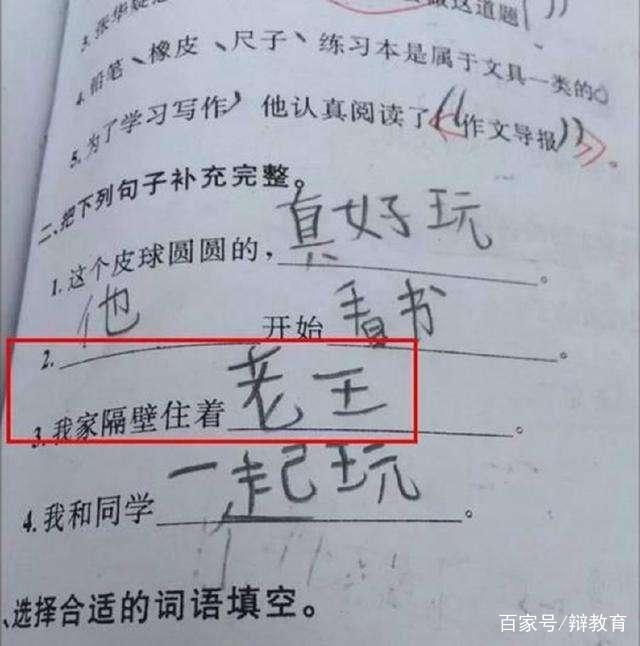 3.张华疑
做这道题( ))
4.铅笔、橡皮、尺子、练习本是属于文具一类的。
5.为了学习写作,他认真阅读了《((作文导报))》。
二、把下列句子补充完整。
1.这个皮球圆圆的,真好玩。
2.他开始看书。
3.我家隔壁住着老王。
4.我和同学一起玩。
、选择合适的词语填空。
百家号/辩教育